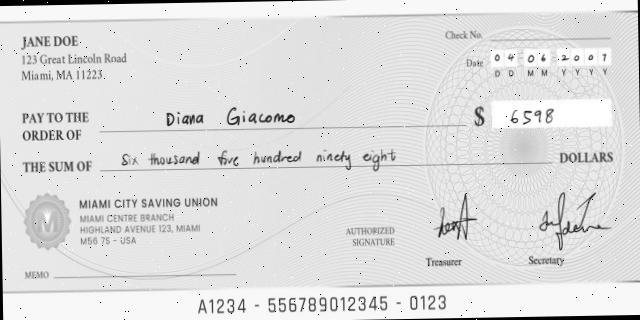 JANE DOE
123 Great Lincoln Road
Miami, MA 11223
Check No.
Date 04 06 2007
D D M M Y Y Y Y
PAY TO THE
ORDER OF Diana Giacomo $ 6598
THE SUM OF Six thousand five hundred ninety eight DOLLARS
MIAMI CITY SAVING UNION
MIAMI CENTRE BRANCH
HIGHLAND AVENUE 123, MIAMI
M56 7S - USA
M
AUTHORIZED
SIGNATURE
Treasurer
Secretary
MEMO
A1234 - 556789012345 - 0123